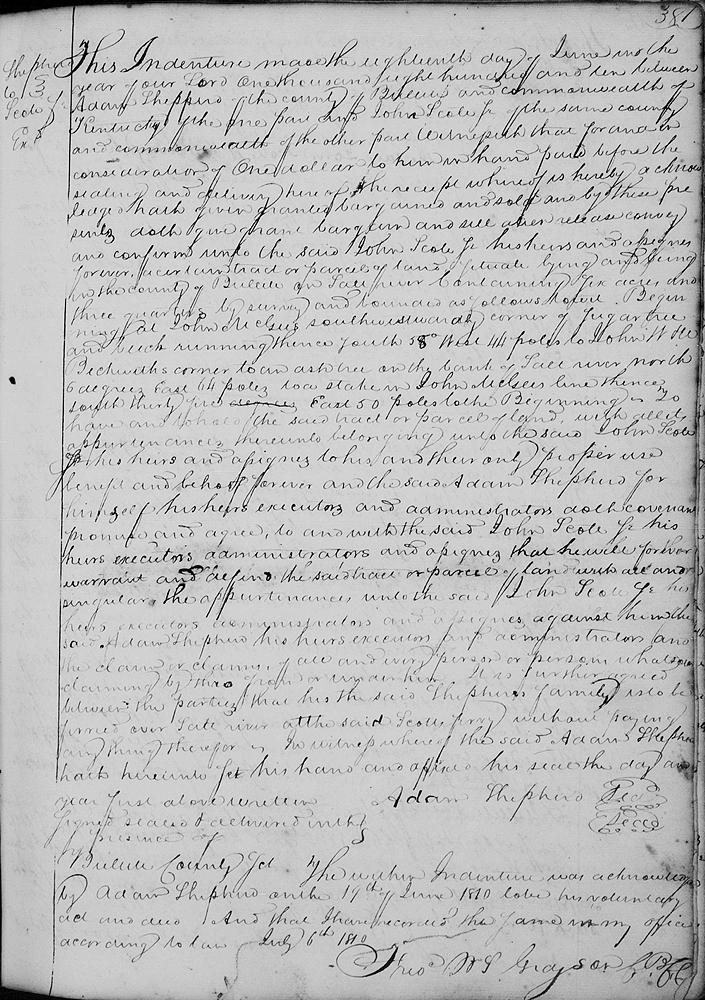 381
Shepherd
to
Scott Jr
Exd
This Indenture made the eighteenth day of June in the
year of our Lord One thousand eight hundred and ten between
Adam Shepherd of the county of Bullitt and commonwealth of
Kentucky of the one part and John Scott Jr of the same county
and commonwealth of the other part Witnesseth that for and in
consideration of One dollar to him in hand paid before the
sealing and delivery here of the receipt whereof is hereby acknow
ledged hath given granted bargained and sold and by these pre
sents doth give grant bargain and sell alien release convey
and confirm unto the said John Scott Jr his heirs and assignes
forever, a certain tract or parcel of land, situate lying and being
in the county of Bullitt on Salt river Containing six acres and
three quarters by survey and bounded as follows towit. Begin
ning at John McGees southwestwardly corner of sugar tree
and beech running thence South 58° West 44 poles to John W
Beckwiths corner to an ash tree on the bank of Salt river north
6 degrees East 64 poles to a stake in John McGees line thence
South thirty five East 50 poles to the Beginning To
have and to hold the said tract or parcel of land, with all its
appurtenances thereunto belonging unto the said John Scott
Jr his heirs and assignes to his and their only proper use
benefit and behoof forever and the said Adam Shepherd for
himself his heirs executors and administrators doth covenant
promise and agree, to and with the said John Scott Jr his
heirs executors administrators and assignes that he will forever
warrant and defend the said tract or parcel of land with all and
singular the appurtinances unto the said John Scott Jr his
heirs executors administrators and assignes against him the
said Adam Shepherd his heirs executors and administrators and
the claim or claims of all and every person or persons whatsoever
claiming by thro from or under him It is further agreed
between the parties that his the said Shepherds family is to be
ferried over Salt river at the said Scotts ferry without paying
any thing therefor In witness whereof the said Adam Shepherd
hath hereunto set his hand and affixed his seal the day and
year first above written Adam Shepherd Seal
Signed sealed & delivered in the
presence of
Bullitt County Sct The within Indenture was acknowledged
by Adam Shepherd on the 19th of June 1810 to be his voluntary
act and deed And that I have recorded the same in my office
according to law July 6th 1810
Thos W Grayson